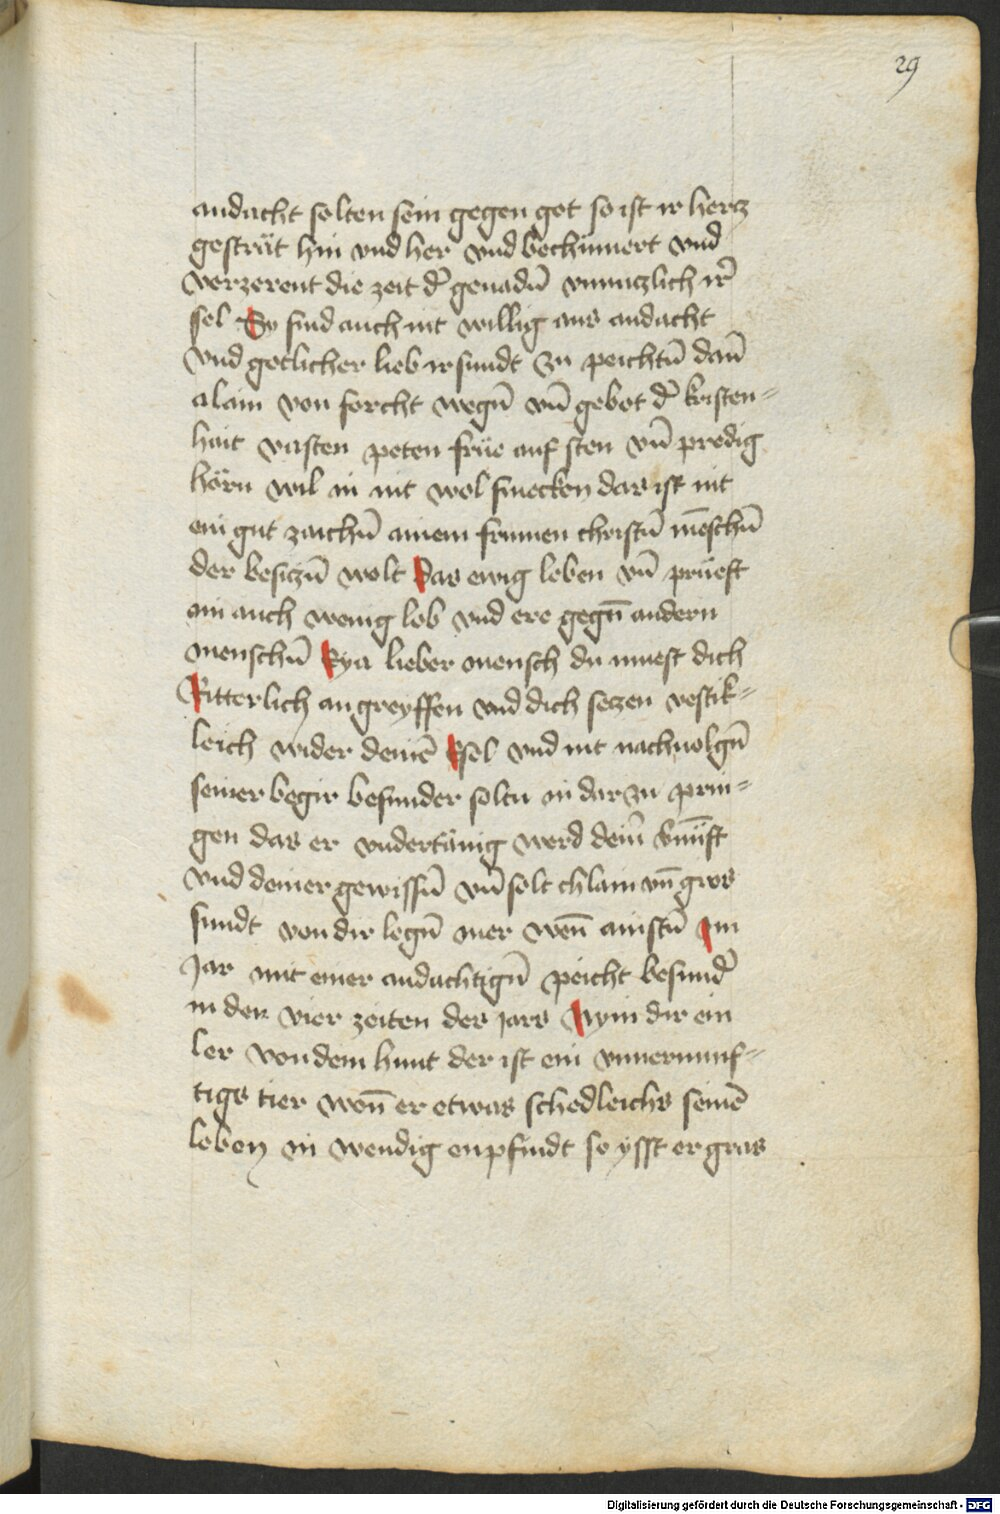 29
andacht solten sein gegen got so ist ir hertz
gesträt hin vnd her vnd bechümert vnd
verzerent die zeit d̄ genadn̄ vnnutzlich ir̄
sel Sy sind auch nit willig aus andacht
vnd gotlicher lieb ir sundt zu peichtn̄ dan̄
alain von forcht wegn̄ vn̄ gebot d̄ kristen⸗
hait vasten peten früe auf sten vn̄ predig
hörn wil in nit wol smecken das ist nit
ein gut zaichn̄ ainem frumen christn̄ mēschn̄
der besiczn̄ wolt Das ewig leben vn̄ prüeft
ain auch wenig lob vnd ere gegn̄ andern
menschn̄ Eya lieber mensch du muest dich
Ritterlich angreyffen vnd dich seczen vestik⸗
leich wider deinē Esel vnd nit nachuolgn̄
seiner begir besunder soltu in dar zu prin⸗
gen das er vndertänig werd dein̄ v̄nüft
vnd deiner gewissn̄ vn̄ solt chlain vn̄ gros
sundt von dir legn̄ mer wen̄ ainstn̄ Im
Jar mit einer andachtign̄ peicht besund̄
in den vier zeiten des jars Nym dir ein
ler von dem hunt der ist ein vnuernunf⸗
tigs tier wen̄ er etwas schedleichs seinē
leben in wendig enpfindt so ysst er gras
Digitalisierung gefördert durch die Deutsche Forschungsgemeinschaft - DFG